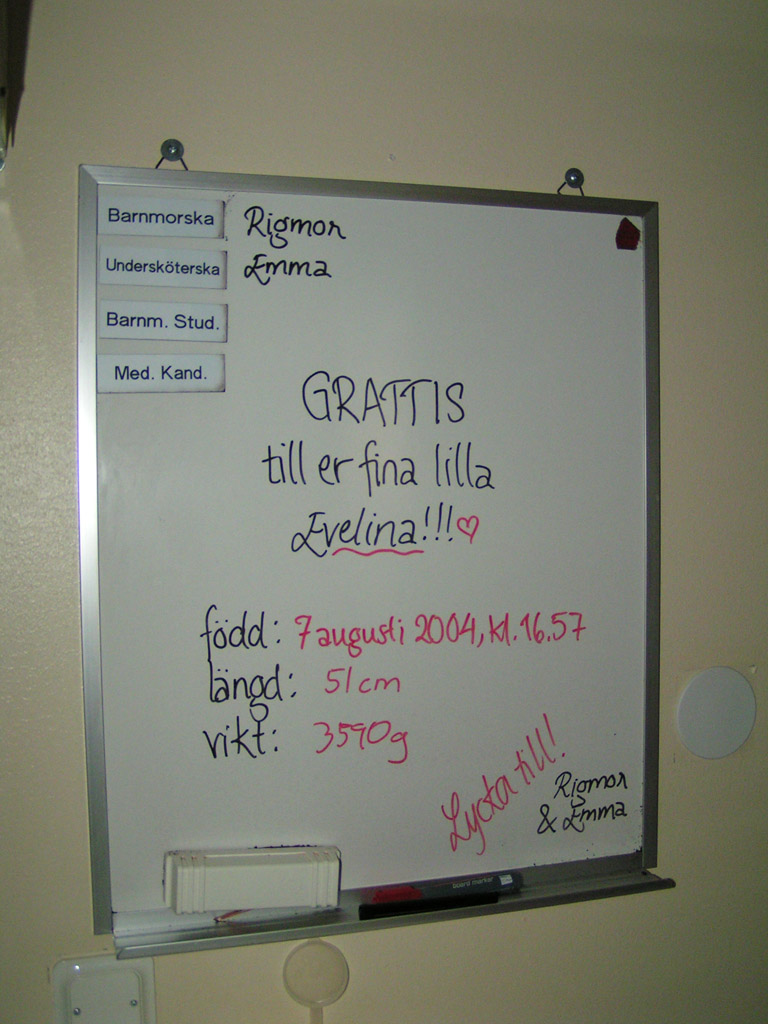 Barnmorska Rigmor
Undersköterska Emma
Barnm. Stud.
Med. Kand.
GRATTIS
till er fina lilla
Evelina!!!♡
född: 7 augusti 2004, kl. 16.57
längd: 51 cm
vikt: 3590g
Lycka till!
Rigmor
& Emma
board marker